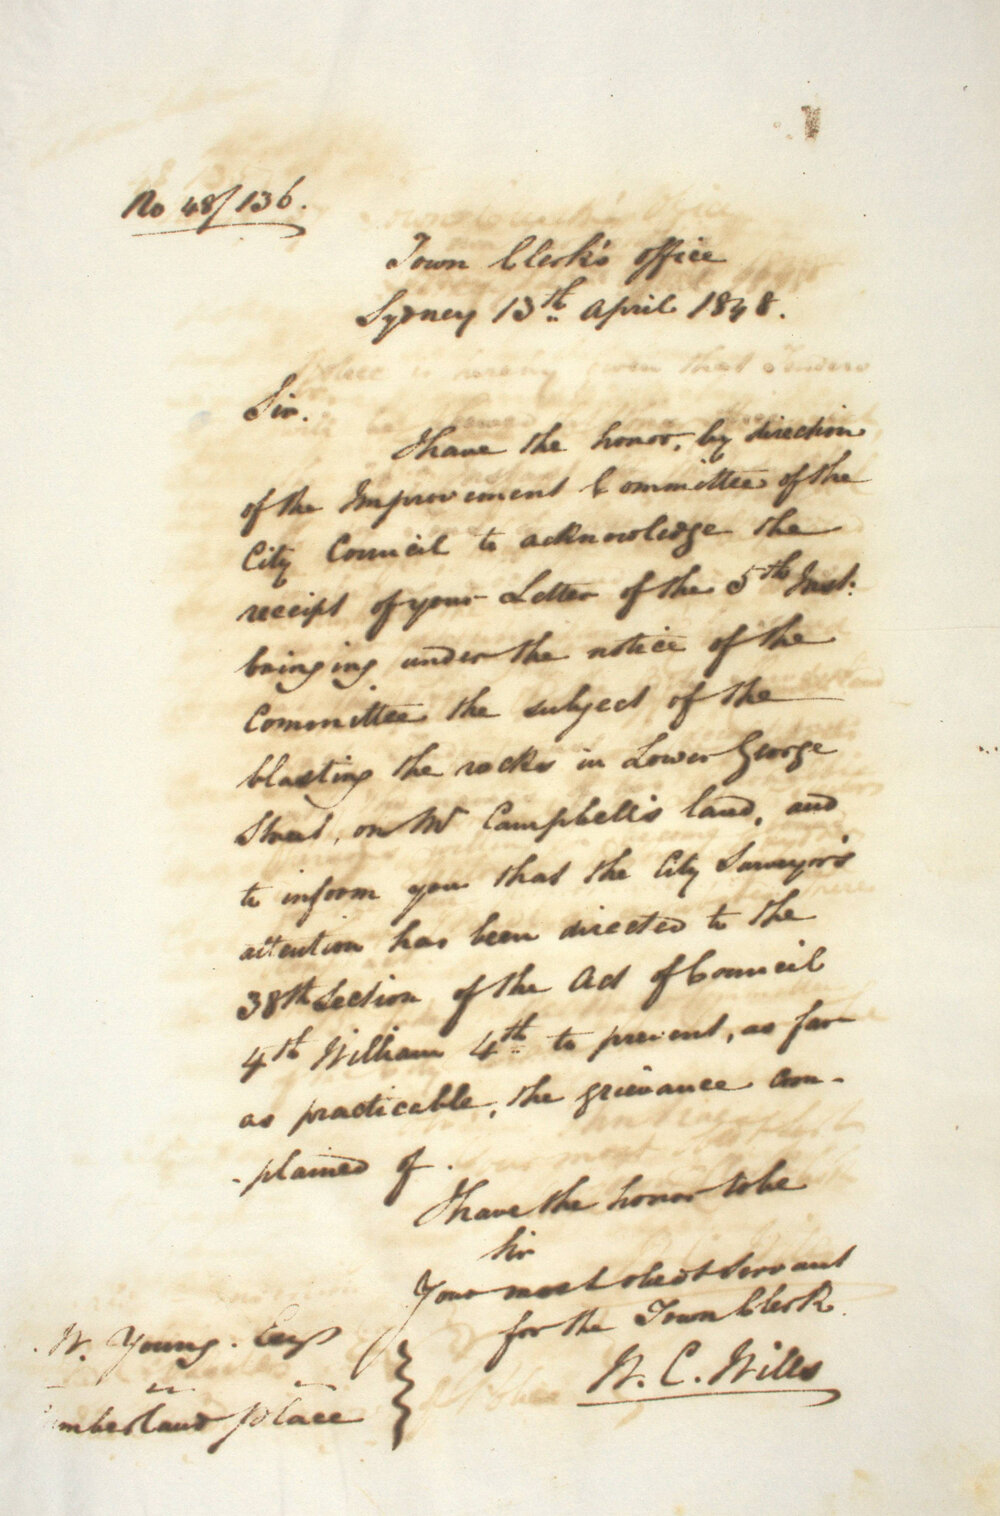 No 48/136.
Town Clerk's office
Sydney 13th April 1848.
Sir.
I have the honor, by direction
of the Improvement Committee of the
City Council to acknowledge the
receipt of your Letter of the 5th Inst:
bringing under the notice of the
Committee the subject of the
blasting the rocks in Lower George
Street, on Mr Campbell's land, and
to inform you that the City Surveyor's
attention has been directed to the
38th Section of the Act of Council
4th William 4th to prevent, as far
as practicable, the grievance com-
-plained of.
I have the honor to be
Sir
Your most obedt Servant
for the Town Clerk.
W. C. Wills
W. Young. Esq
mberland place